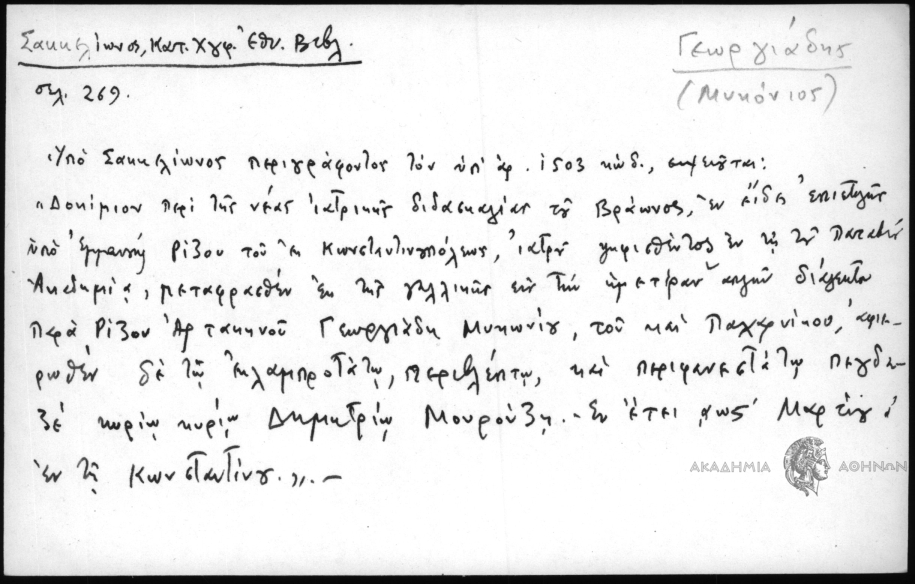 Σακκελίωνος, Κατ. Χγρ. Ἐθν. Βιβλ.
Γεωργιάδης
(Μυκόνιος)
σελ. 269.
Ὑπὸ Σακκελίωνος περιγράφοντος τὸν ὑπ' ἀρ. 1503 κώδ., σημειοῦται:
"Δοκίμιον περὶ τῆς νέας ἰατρικῆς διδασκαλίας τοῦ Βράωνος, ἐν εἴδει ἐπιστολῆς
ὑπὸ Ἐμμανουὴλ Ρίζου τοῦ ἐκ Κωνσταντινουπόλεως, ἰατροῦ ψηφισθέντος ἐν τῇ τῶν Παταβίων
Ἀκαδημίᾳ, μεταφρασθὲν ἐκ τῆς γαλλικῆς εἰς τὴν ἡμετέραν ἁπλῆν διάλεκτον
παρὰ Ρίζου Ἀρτακηνοῦ Γεωργιάδη Μυκωνίου, τοῦ καὶ Παχυνίκου, ἀφιε-
ρωθὲν δὲ τῷ ἐκλαμπροτάτῳ, περιβλέπτῳ, καὶ περιφανεστάτῳ πεγζα-
δὲ κυρίῳ κυρίῳ Δημητρίῳ Μουρούζῃ. - Ἐν ἔτει ͵αωϛ' Μαρτίου
ἐν τῇ Κωνσταντινου.," . -
ΑΚΑΔΗΜΙΑ ΑΘΗΝΩΝ